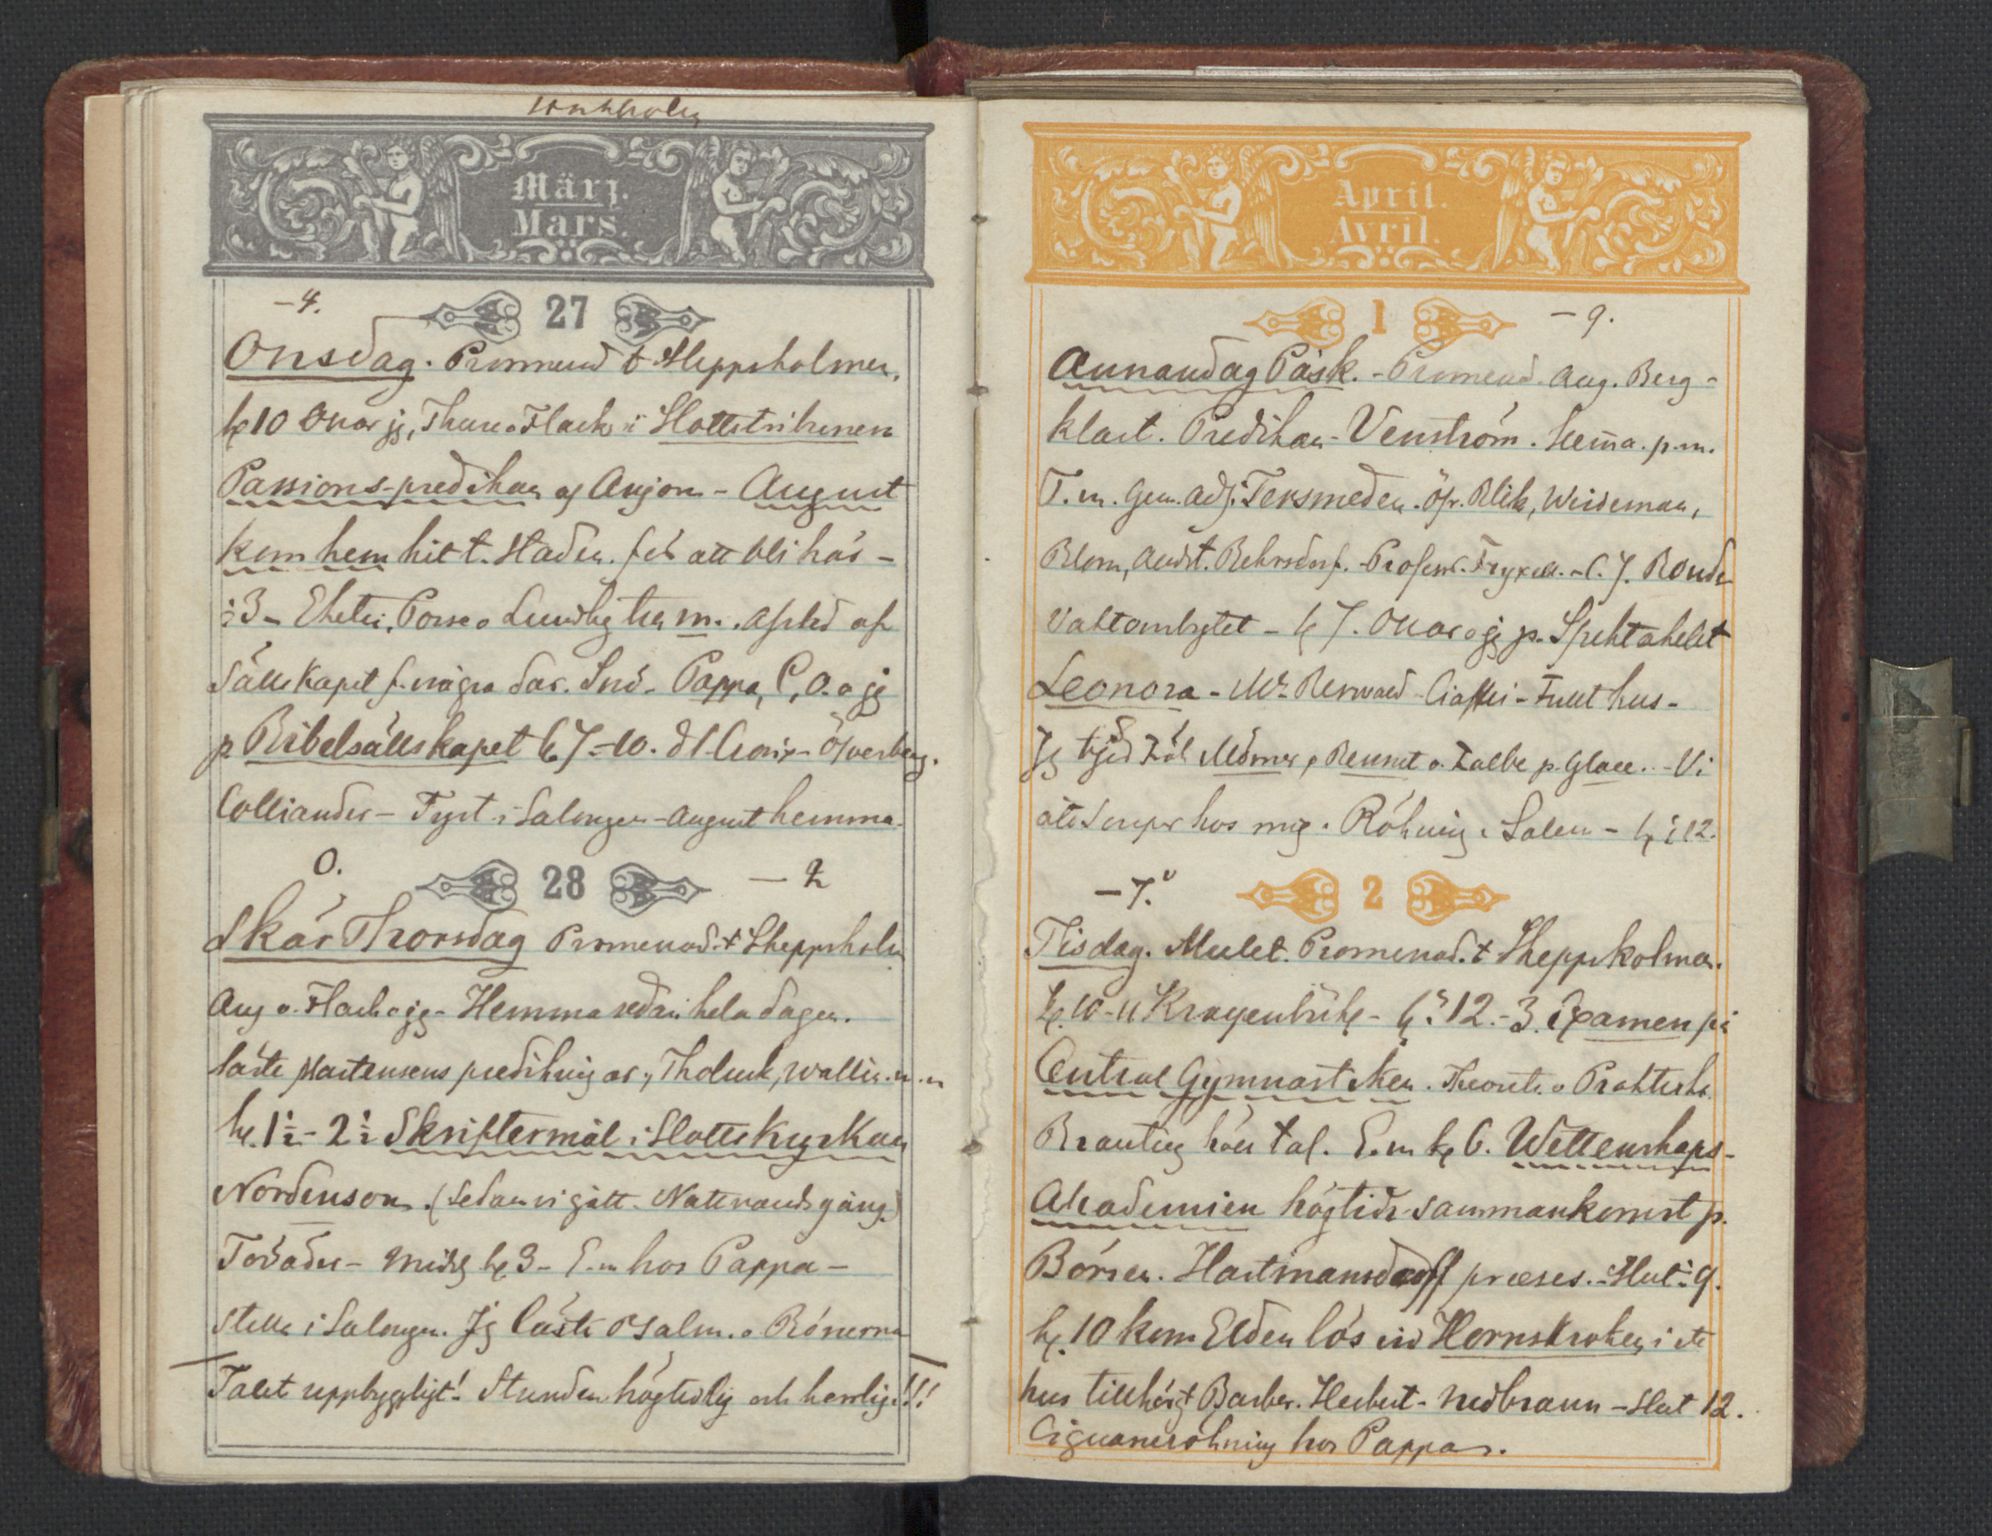 März.
Mars.
-4.
27
Onsdag. Promenad t Skeppsholmen,
kl 10 Oscar jg, Thure o Flach i Slottstribunen
Passions-predikan af Anjou - August
kom hem hit t. Staden. för att bli här -
i 3 - Eheter, Posse o Lundbg hem m. afsked af
Sällskapet f. några dar. Snö - Pappa, C, O. o jg
p Bibelsällskapet kl 7-10. Öfverberg.
Colliander - Tyst i Salongen - August hemma.
0.
28
- 2
Skär Thorsdag Promenad. t Skeppsholm
Aug o. Flach o jg - Hemma sedan hela dagen.
läste Martensens predikningar, Tholuck, Wallin m. m
kl. 1½ - 2½ Skriftermål i Slottskyrkan
Nordenson. (Sedan vi gått Nattvardsgång.)
Middg kl 3 - E.m hos Pappa -
Stilla i Salongen. Jg läste Psalm. o Bönerna
Talet uppbyggligt! Stunden högtidlig och herrlig!!!
April.
Avril.
1
- 9.
Annandag Påsk. - Promenad. Aug. Berg-
klart. Predikan - Venström. Hemma. p.m.
F. m. Gen. Adj. Tersmeden. Öfv. Blik, Weideman,
Blom, Behrsdorf. - Profess. Fryxell. - C. J. Bonde
Vaktombytet - kl 7. Oscar o jg p. Spektaklet
Leonora - Mr Berwald - Ciaffei - Fullt hus -
Jg bjöd Mörner, Bennet o. Kalbe p. Glace. - Vi
åto Souper hos mig. Rökning i Salen - kl ½ 12.
-7.
2
Tisdag. Mulet. Promenad. t Skeppsholmen.
kl. 10-11 Kragenbühl - kl. 12.-3. Examen på
Central Gymnastiken. Theoret. o Praktisk.
Branting höll tal. E.m kl 6. Wettenskaps-
Akademien högtids-sammankomst p.
Börsen. Hartmansdorff præses. - Slut ½ 9.
kl. 10 kom Elden lös vid Hornskroken, i ett
hus tillhörgt Barber. Herbert - nedbrann - Slut 12.
Cigarrerökning hos Pappa.